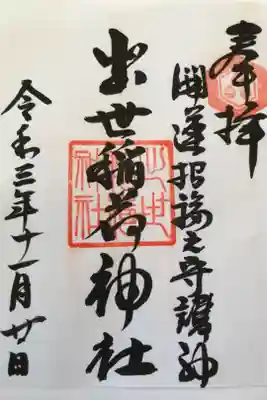 奉拝
開運招福之守護神
出世稲荷神社
令和三年十一月廿日